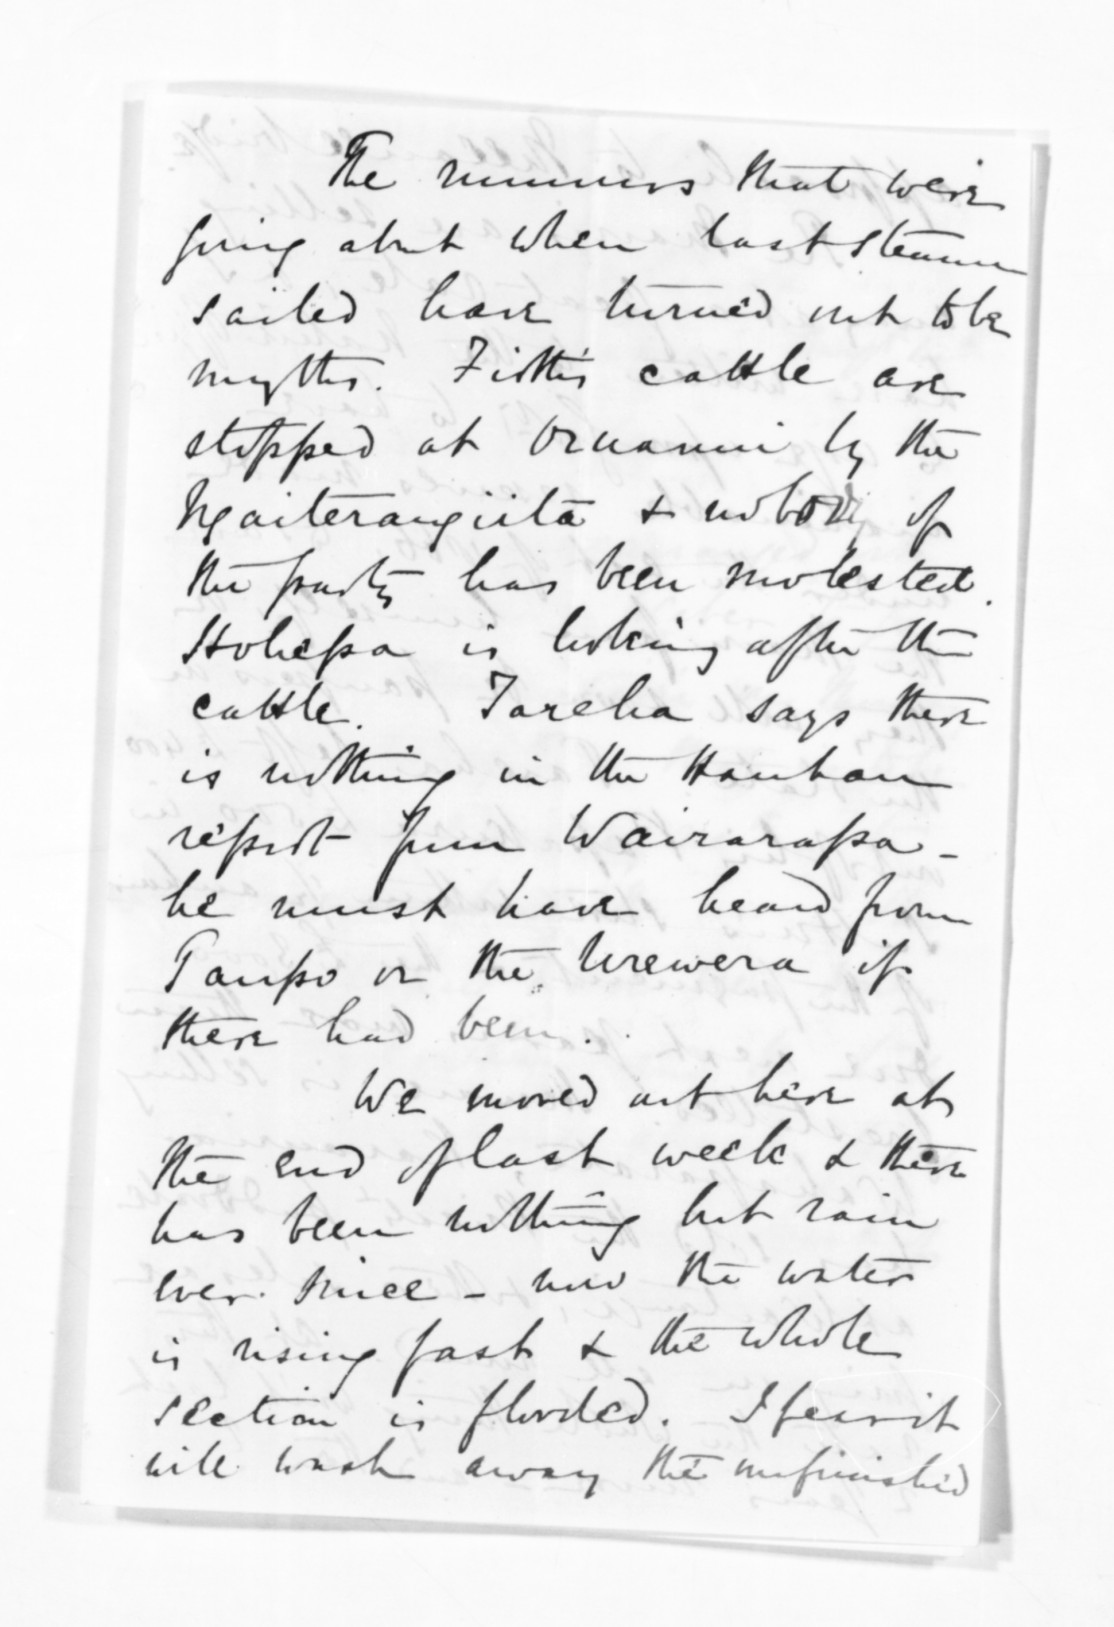 The rumours that were
going about when last steamer
sailed have turned out to be
myths. Firth's cattle are
stopped at Oruanui by the
Ngaiterangiita & nobody of
the party has been molested.
Hohepa is looking after the
cattle. Tareha says there
is nothing in the Hauhau
report from Wairarapa -
he must have heard from
Taupo or the Urewera if
there had been.
We moved out here at
the end of last week & there
has been nothing but rain
ever since - now the water
is rising fast & the whole
section is flooded. I fear it
will wash away the unfinished